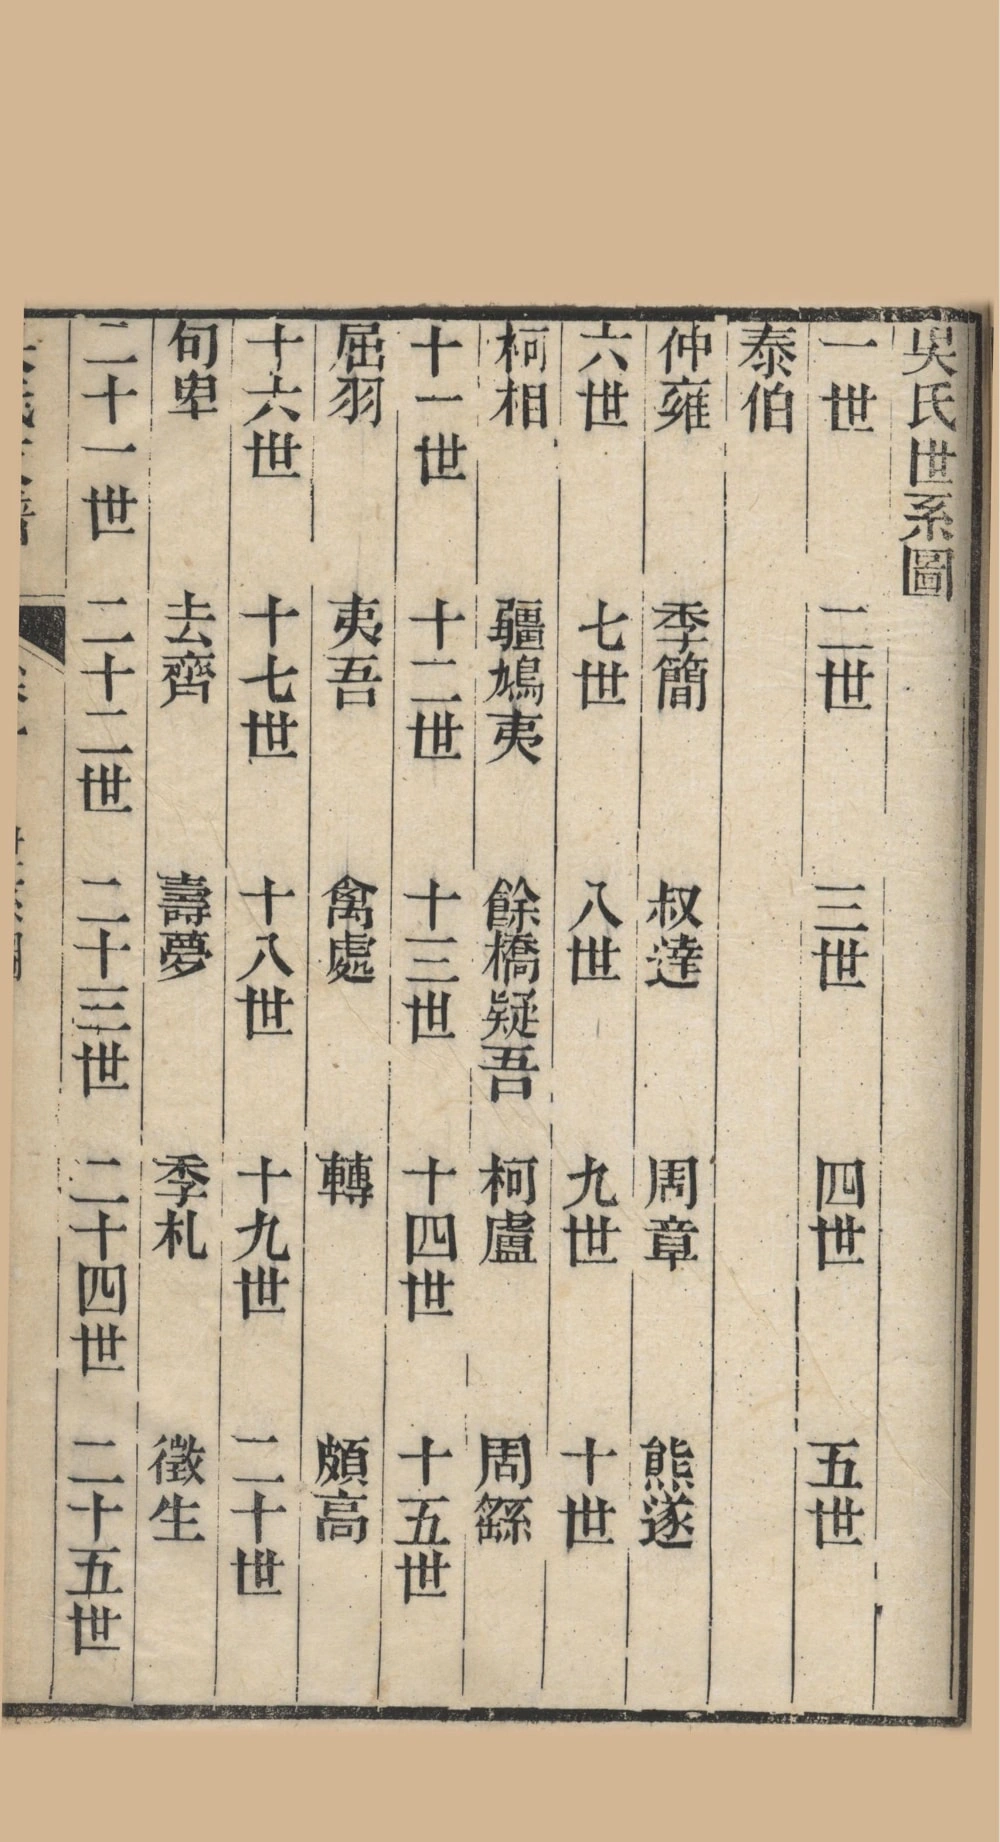 吳氏世系圖
一世　二世　三世　四世　五世
泰伯
仲雍　季簡　叔達　周章　熊遂
六世　七世　八世　九世　十世
柯相　疆鳩夷　餘橋疑吾　柯盧　周繇
十一世　十二世　十三世　十四世　十五世
屈羽　夷吾　禽處　轉　頗高
十六世　十七世　十八世　十九世　二十世
句卑　去齊　壽夢　季札　徵生
二十一世　二十二世　二十三世　二十四世　二十五世